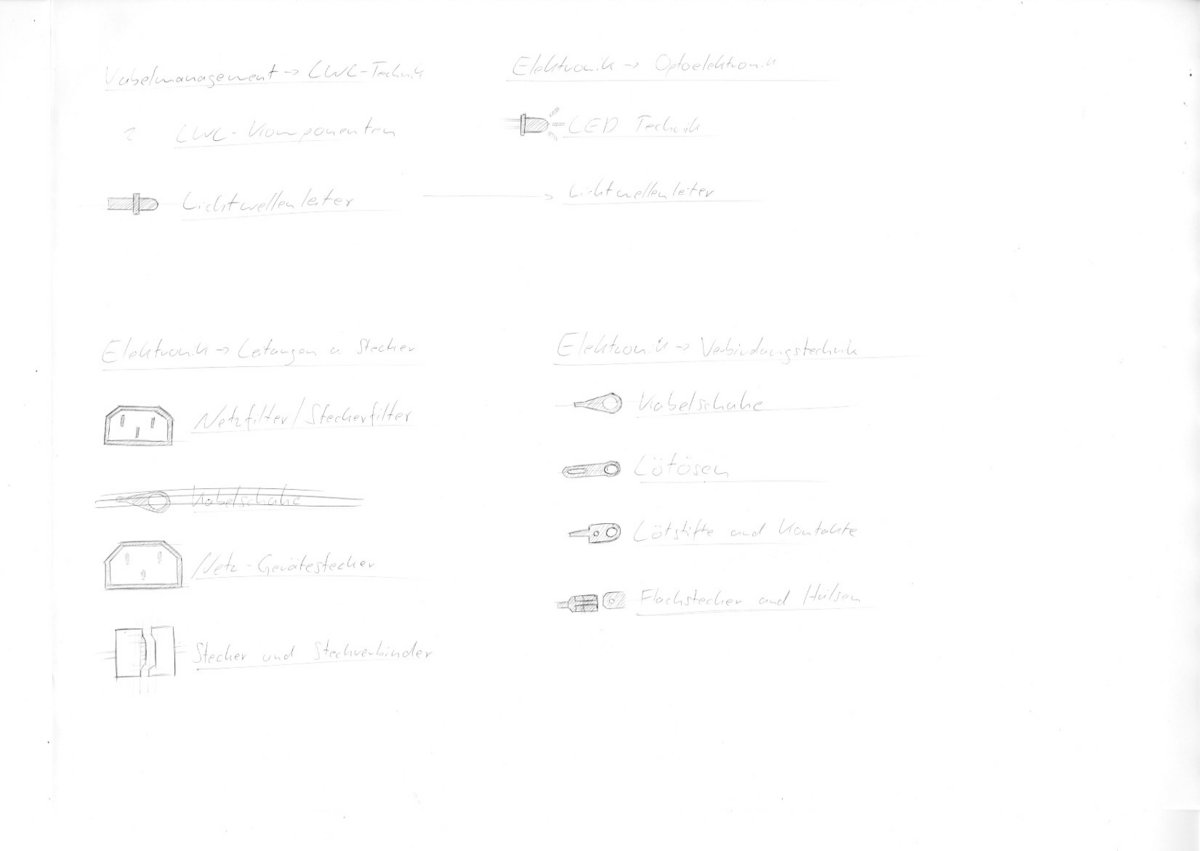 Kabelmanagement → LWL-Technik
? LWL-Komponenten
Lichtwellenleiter
Elektronik → Optoelektronik
LED Technik
→ Lichtwellenleiter
Elektronik → Leitungen u Stecker
Netzfilter/Steckerfilter
Kabelschuhe
Netz-Gerätestecker
Stecker und Steckverbinder
Elektronik → Verbindungstechnik
Kabelschuhe
Lötösen
Lötstifte und Kontakte
Flachstecker und Hülsen